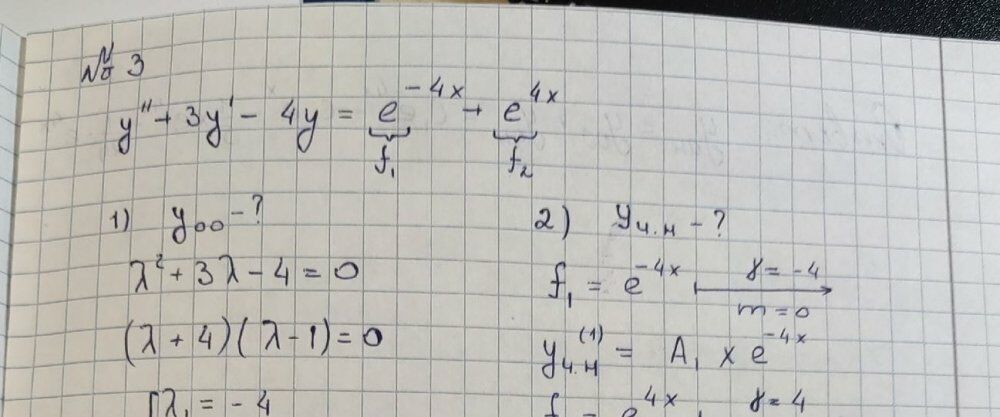 № 3
y'' + 3y' - 4y = e^{-4x} + e^{4x}
f₁ f₂
1) y₀₀ - ?
λ² + 3λ - 4 = 0
(λ + 4)(λ - 1) = 0
λ₁ = -4
2) yч.н - ?
f₁ = e^{-4x}, γ = -4
m = 0
yч.н^{(1)} = A₁ x e^{-4x}
f = e^{4x}, γ = 4